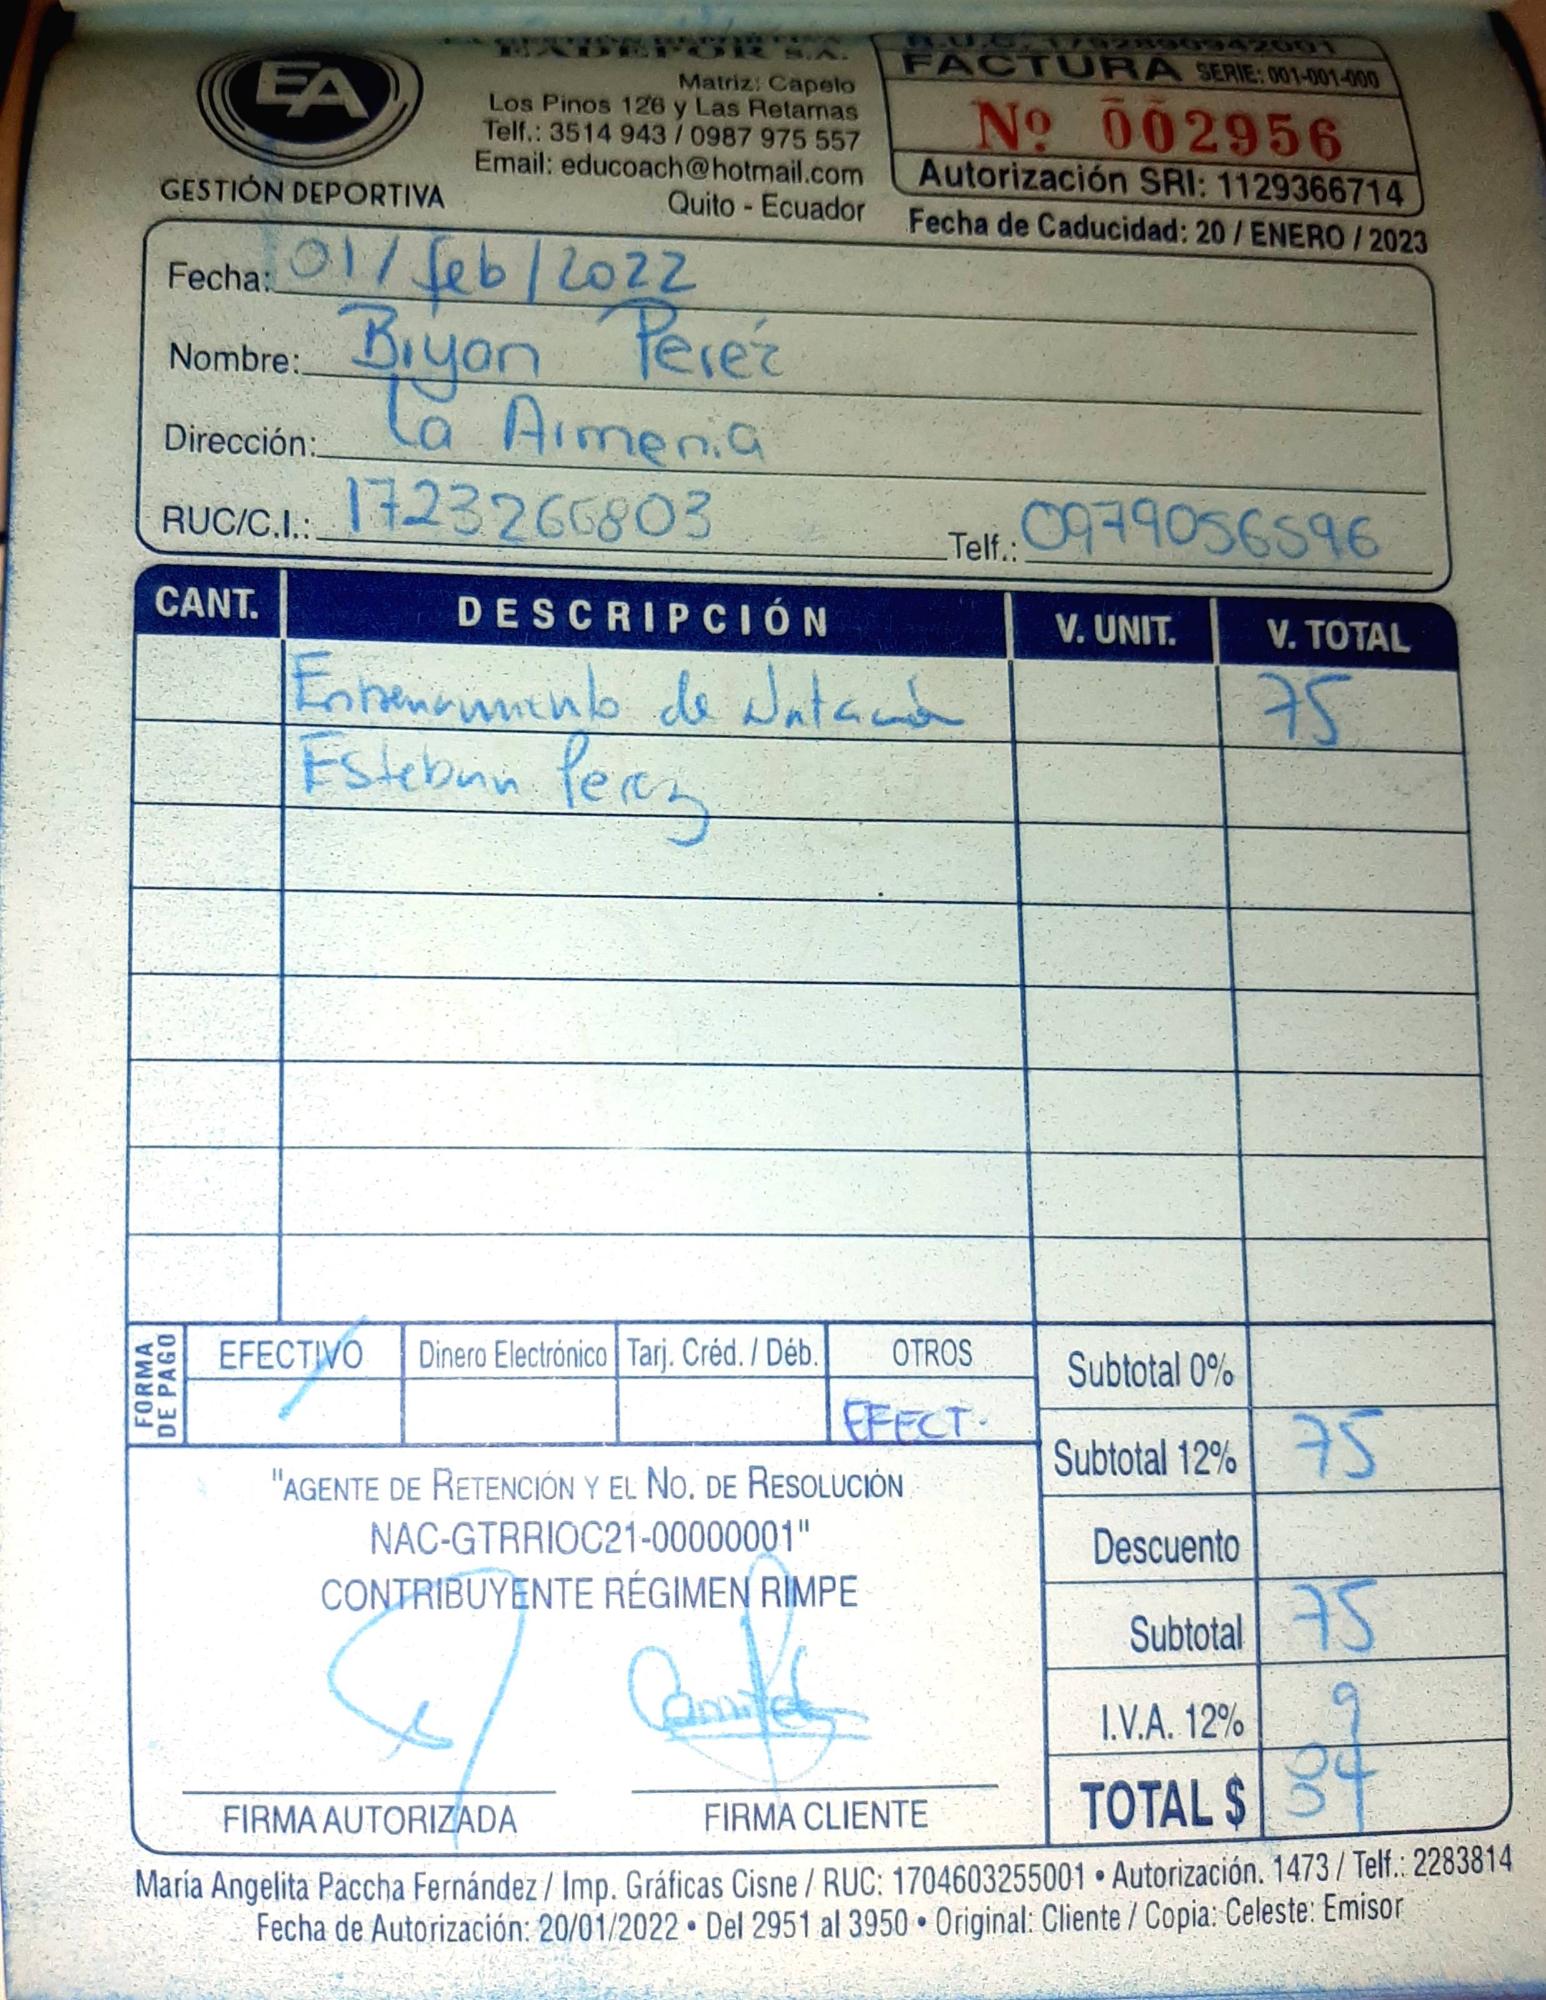 EA
GESTIÓN DEPORTIVA
EADEPOR S.A.
Matriz: Capelo
Los Pinos 126 y Las Retamas
Telf.: 3514 943 / 0987 975 557
Email: educoach@hotmail.com
Quito - Ecuador
R.U.C. 1792890942001
FACTURA SERIE: 001-001-000
Nº 002956
Autorización SRI: 1129366714
Fecha de Caducidad: 20 / ENERO / 2023
Fecha: 01/feb/2022
Nombre: Bryan Peréz
Dirección: La Armenia
RUC/C.I.: 1723266803 Telf.: 0979056596
CANT. DESCRIPCIÓN V. UNIT. V. TOTAL
Entrenamiento de Natación 75
Esteban Perez
FORMA DE PAGO
EFECTIVO Dinero Electrónico Tarj. Créd. / Déb. OTROS
EFECT.
Subtotal 0%
Subtotal 12% 75
Descuento
Subtotal 75
I.V.A. 12% 9
TOTAL $ 84
"AGENTE DE RETENCIÓN Y EL NO. DE RESOLUCIÓN
NAC-GTRRIOC21-00000001"
CONTRIBUYENTE RÉGIMEN RIMPE
FIRMA AUTORIZADA FIRMA CLIENTE
María Angelita Paccha Fernández / Imp. Gráficas Cisne / RUC: 1704603255001 • Autorización. 1473 / Telf.: 2283814
Fecha de Autorización: 20/01/2022 • Del 2951 al 3950 • Original: Cliente / Copia: Celeste: Emisor